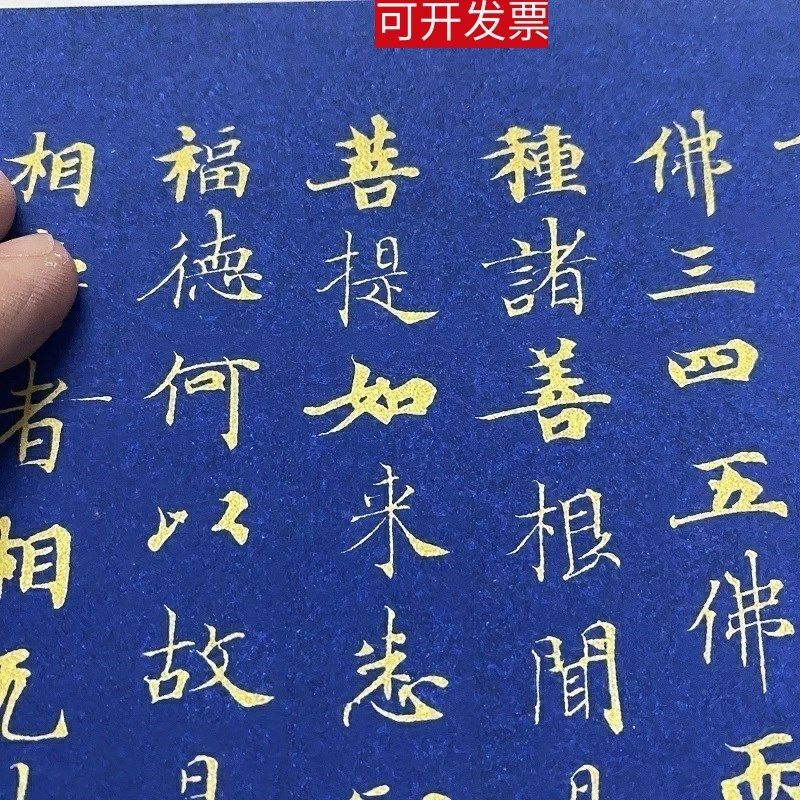 可开发票
佛三四五佛而
種諸善根聞是
菩提如来悉知
福德何以故是
相者相无